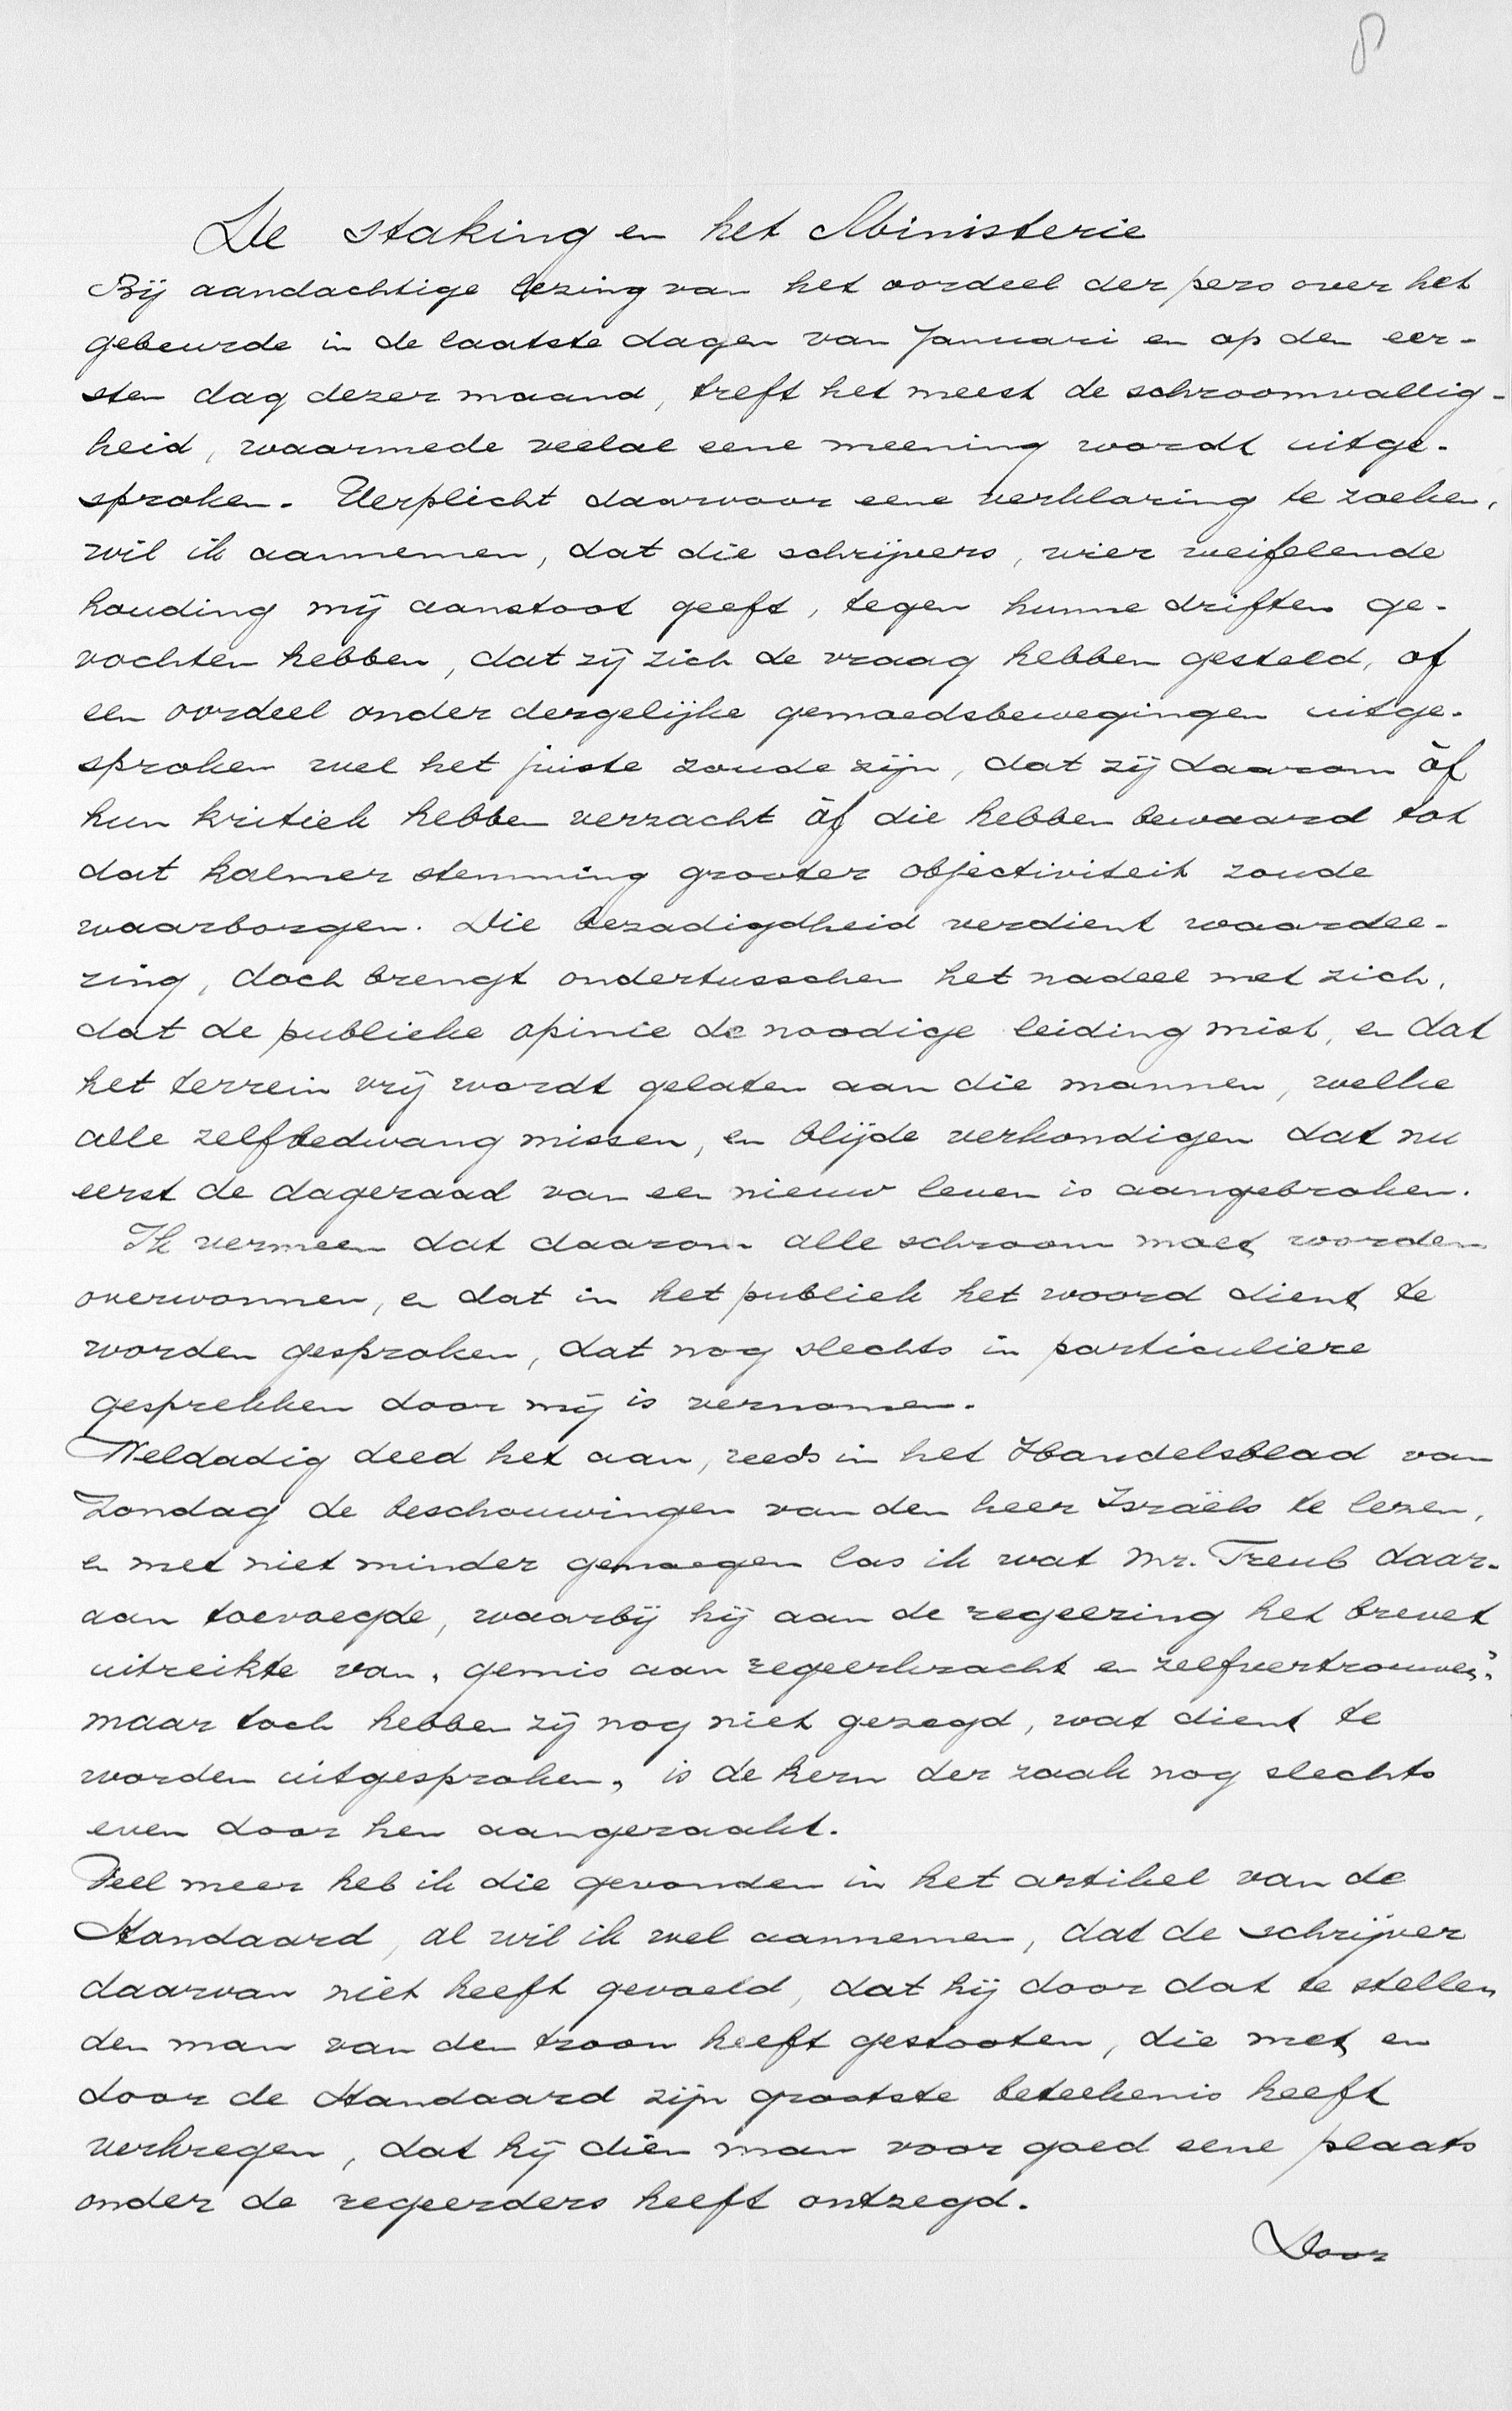 8
De staking en het Ministerie
Bij aandachtige lezing van het oordeel der pers over het
gebeurde in de laatste dagen van Januari en op den eer-
sten dag dezer maand, treft het meest de schroomvallig-
heid, waarmede veelal eene meening wordt uitge-
sproken. Verplicht daarvoor eene verklaring te zoeken,
wil ik aannemen, dat die schrijvers, wier weifelende
houding mij aanstoot geeft, tegen hunne driften ge-
vochten hebben, dat zij zich de vraag hebben gesteld, of
een oordeel onder dergelijke gemoedsbewegingen uitge-
sproken wel het juiste zoude zijn, dat zij daarom òf
hun kritiek hebben verzacht òf die hebben bewaard tot
dat kalmer stemming grooter objectiviteit zoude
waarborgen. Die bezadigdheid verdient waardee-
ring, doch brengt ondertusschen het nadeel met zich,
dat de publieke opinie de noodige leiding mist, en dat
het terrein vrij wordt gelaten aan die mannen, welke
alle zelfbedwang missen, en blijde verkondigen dat nu
eerst de dageraad van een nieuw leven is aangebroken.
Ik vermeen dat daarom alle schroom moet worden
overwonnen, en dat in het publiek het woord dient te
worden gesproken, dat nog slechts in particuliere
gesprekken door mij is vernomen.
Weldadig deed het aan, reeds in het Handelsblad van
Zondag de beschouwingen van den heer Israëls te lezen,
en met niet minder genoegen las ik wat Mr. Treub daar-
aan toevoegde, waarbij hij aan de regeering het brevet
uitreikte van „gemis aan regeerkracht en zelfvertrouwen",
maar toch hebben zij nog niet gezegd, wat dient te
worden uitgesproken, is de kern der zaak nog slechts
even door hen aangeraakt.
Veel meer heb ik die gevonden in het artikel van de
Standaard, al wil ik wel aannemen, dat de schrijver
daarvan niet heeft gevoeld, dat hij door dat te stellen
den man van den troon heeft gestooten, die met en
door de Standaard zijn grootste beteekenis heeft
verkregen, dat hij dien man voor goed eene plaats
onder de regeerders heeft ontzegd.
Door